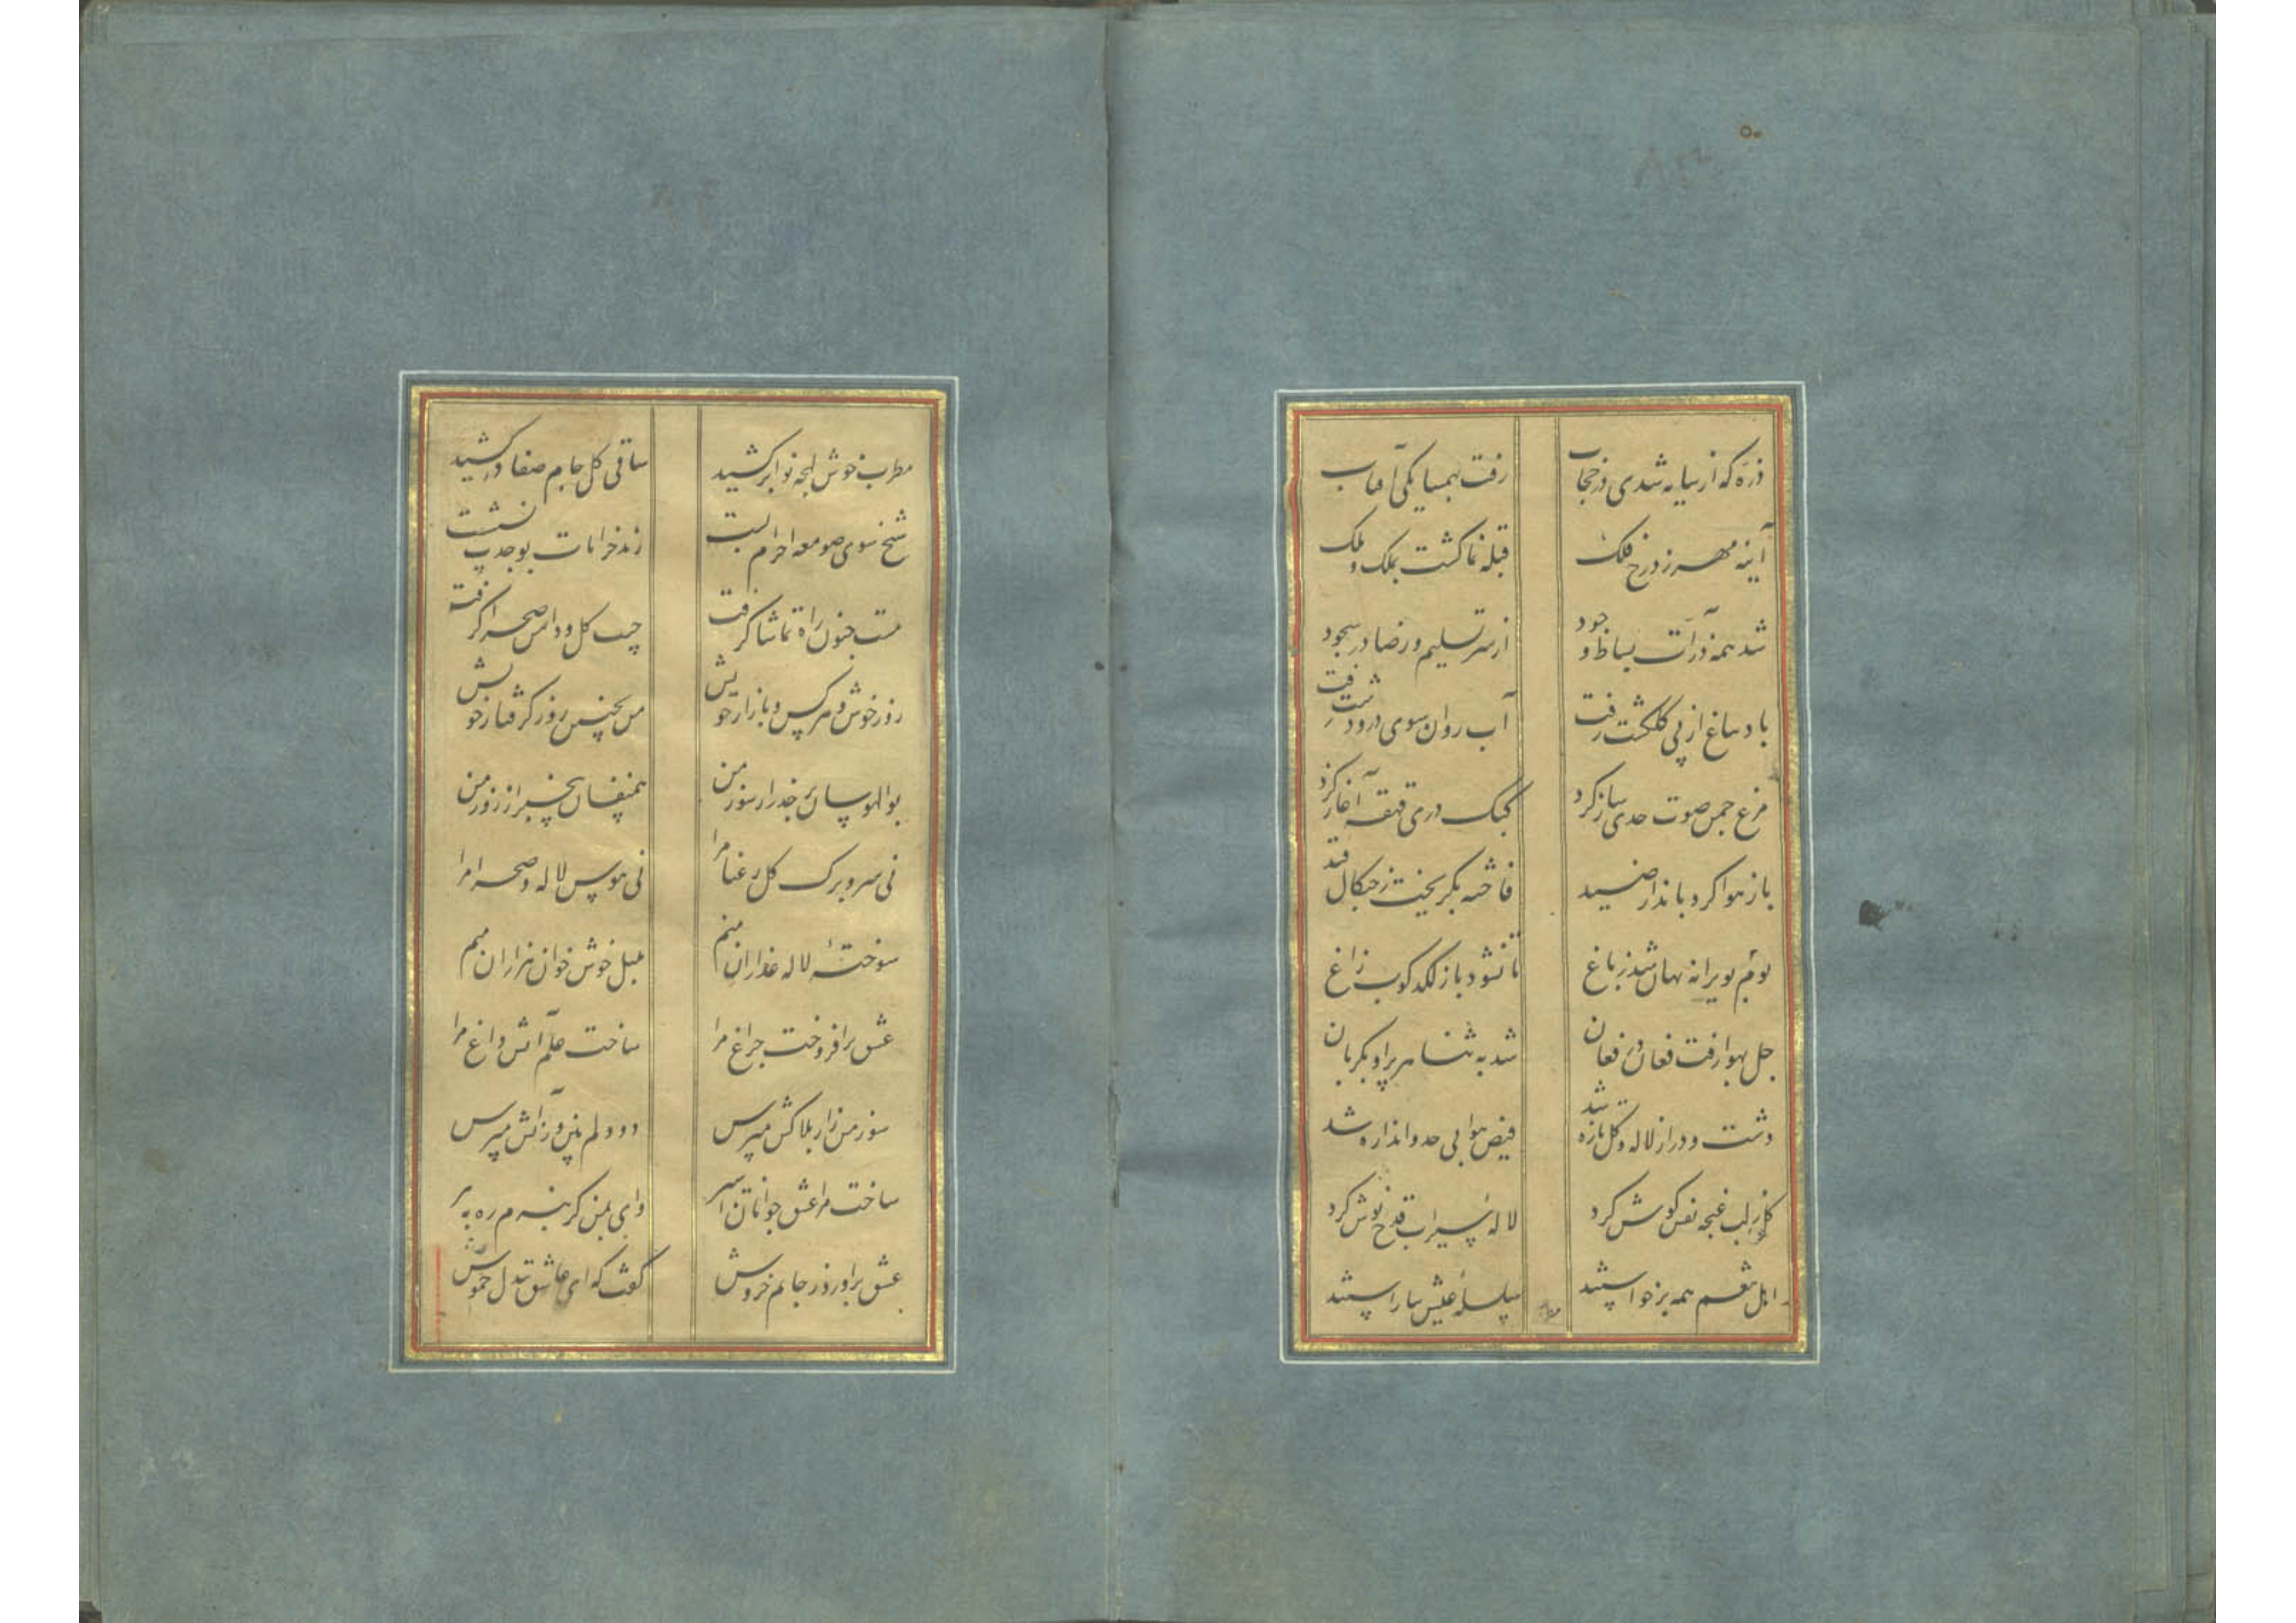 ذره که از سایه شدی در حجاب
رفت بهمسایکی آفتاب
آینه مهر ز درج فلک
قبله نما کشت بملک و ملک
شد همه ذرات بساط وجود
از سر تسلیم و رضا در سجود
باد بباغ از پی کلکشت رفت
آب روان سوی در و دشت رفت
مرغ چمن صوت حدی ساز کرد
کبک دری قهقهه آغاز کرد
باز هوا کرد بانداز صید
فاخته بکریخت ز چنکال قید
بوم بویرانه نهان شد ز باغ
تا نشود باز لکدکوب زاغ
جل بهوا رفت فغان در فغان
شد به ثنا هر پر او یکزبان
دشت و در از لاله و کل تازه شد
فیض هوا بی حد و اندازه شد
کل ز لب غنچه نفس کوش کرد
لاله سیراب قدح نوش کرد
اهل تنعم همه برخواستند
سلسله عیش بیاراستند
مطرب
مطرب خوش لهجه نوا برکشید
ساقی کل جام صفا درکشید
شیخ سوی صومعه احرام بست
رند خرابات بوجد
مست جنون راه تماشا کرفت
جیب کل و دامن صحرا کرفت
روز خوش و هرکس و بازار خویش
من بچنین روز کرفتار خویش
بوالهوسان بر حذر از سوز من
همنفسان بیخبر از روز من
نی سر و برک کل رعنا مرا
نی هوس لاله و صحرا مرا
سوخته لاله عذاران منم
بلبل خوش خوان هزاران منم
عشق برافروخت چراغ مرا
ساخت علم آتش داغ مرا
سوز من زار بلاکش مپرس
دود دلم بین و ز آتش مپرس
ساخت مرا عشق جوانان اسیر
وای بمن کر ننهم ره به پیر
عشق برآورد ز جانم خروش
کفت که ای عاشق خموش